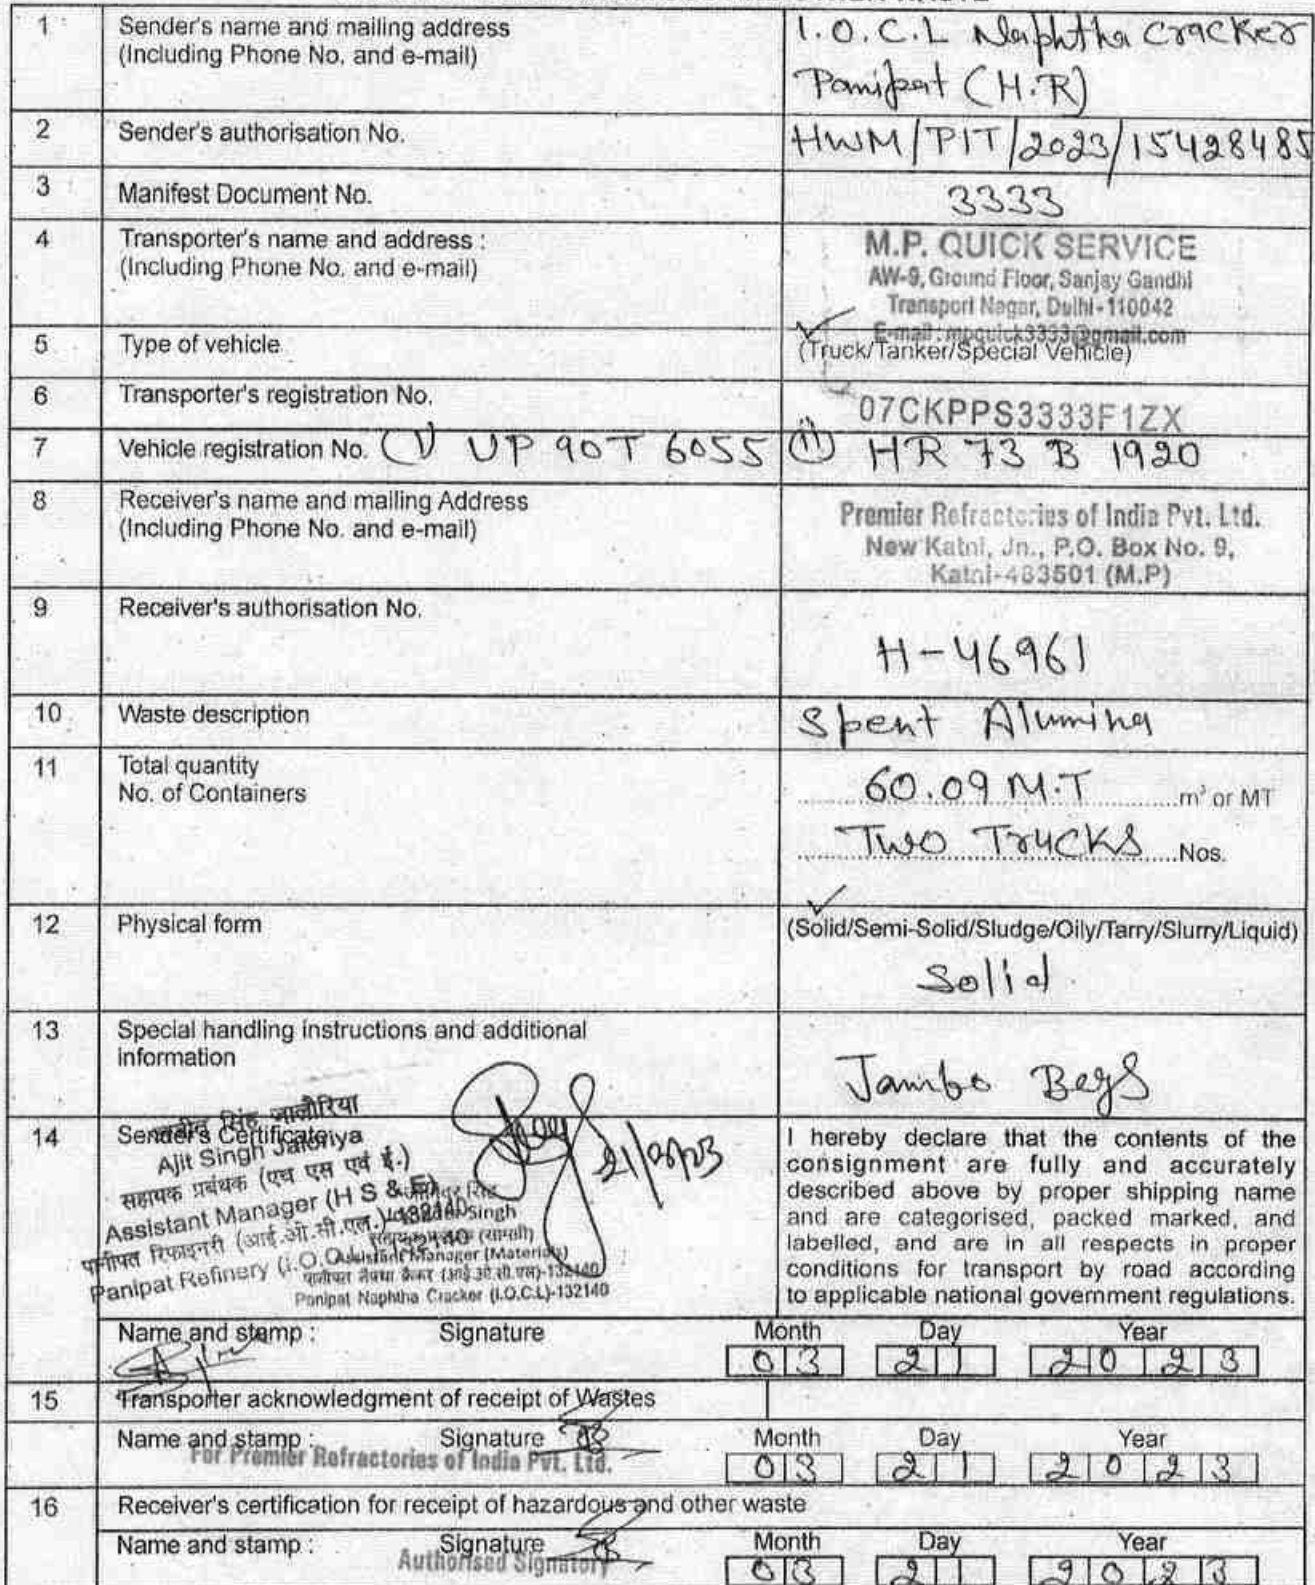 1 Sender's name and mailing address I.O.C.L Naphtha Cracker
(Including Phone No. and e-mail) Panipat (H.R)
2 Sender's authorisation No. HWM/PIT/2023/15428485
3 Manifest Document No. 3333
4 Transporter's name and address : M.P. QUICK SERVICE
(Including Phone No. and e-mail) AW-9, Ground Floor, Sanjay Gandhi
Transport Nagar, Delhi-110042
E-mail : mpquick3333@gmail.com
5 Type of vehicle (Truck/Tanker/Special Vehicle)
6 Transporter's registration No. 07CKPPS3333F1ZX
7 Vehicle registration No. (i) UP 90T 6055 (ii) HR 73 B 1920
8 Receiver's name and mailing Address Premier Refractories of India Pvt. Ltd.
(Including Phone No. and e-mail) New Katni, Jn., P.O. Box No. 9,
Katni-483501 (M.P)
9 Receiver's authorisation No. H-46961
10 Waste description Spent Alumina
11 Total quantity 60.09 M.T m³ or MT
No. of Containers Two Trucks Nos.
12 Physical form (Solid/Semi-Solid/Sludge/Oily/Tarry/Slurry/Liquid)
Solid
13 Special handling instructions and additional
information Jambo Begs
14 Sender's Certificate
सिंह जालौरिया
Ajit Singh Jaloriya
सहायक प्रबंधक (एच एस एवं ई.)
Assistant Manager (H S & E)
पानीपत रिफाइनरी (आई.ओ.सी.एल.)-132140
Panipat Refinery (I.O.C
सिंह
Singh
Assistant Manager (Materials)
पानीपत नैफ्था क्रैकर (आई.ओ.सी.एल)-132140
Panipat Naphtha Cracker (I.O.C.L)-132140
21/03/23
I hereby declare that the contents of the
consignment are fully and accurately
described above by proper shipping name
and are categorised, packed marked, and
labelled, and are in all respects in proper
conditions for transport by road according
to applicable national government regulations.
Name and stamp : Signature Month Day Year
03 21 2023
15 Transporter acknowledgment of receipt of Wastes
Name and stamp : Signature Month Day Year
For Premier Refractories of India Pvt. Ltd. 03 21 2023
16 Receiver's certification for receipt of hazardous and other waste
Name and stamp : Signature Month Day Year
Authorised Signatory 03 21 2023